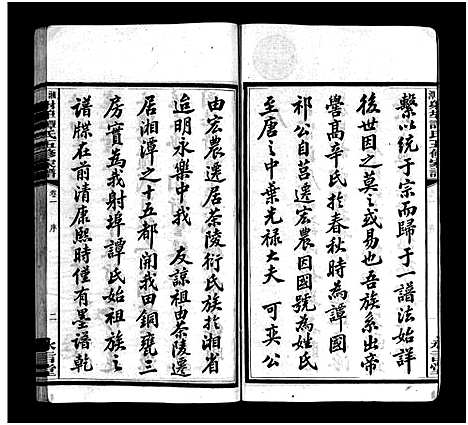 繫以統于宗而歸于一譜法始詳
後世因之莫之或易也吾族系出帝
嚳高辛氏於春秋時為譚國
祁公自莒遷宏農因國號為姓氏
至唐之中葉光祿大夫 可奕公
由宏農遷居茶陵衍氏族於湘省
迨明永樂中我 友諒祖由茶陵遷
居湘潭之十五都開我田銅甕三
房實為我射埠譚氏始祖族之
譜牒在前清康熙時僅有墨譜乾
卷一 序
二